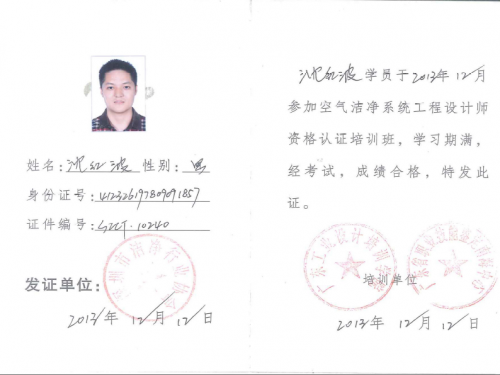 姓名：沈红波 性别：男
身份证号：412326197809091857
证件编号：SZCT-10240
发证单位：
2013年 12月 12日
沈红波学员于2013年12月
参加空气洁净系统工程设计师
资格认证培训班，学习期满，
经考试，成绩合格，特发此
证。
培训单位
2013年 12月 12日